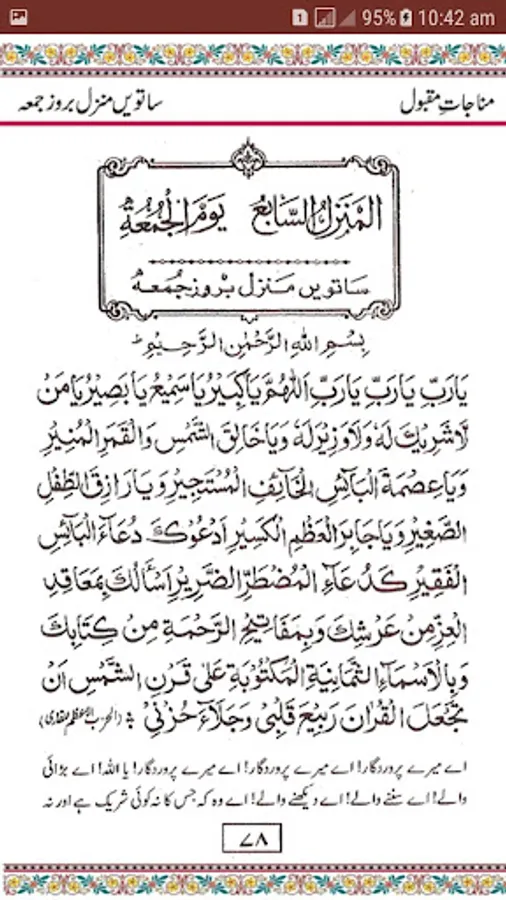 95% 10:42 am
مناجاتِ مقبول ساتویں منزل بروز جمعہ
المَنزِلُ السَّابِعُ يَومَ الجُمُعَةِ
ساتویں منزل بروز جمعہ
بِسْمِ اللهِ الرَّحْمٰنِ الرَّحِيْمِ
يَارَبِّ يَارَبِّ يَارَبِّ اَللّٰهُمَّ يَاكَبِيْرُ يَاسَمِيْعُ يَا بَصِيْرُ يَامَنْ
لَّا شَرِيْكَ لَهٗ وَلَا وَزِيْرَ لَهٗ وَيَا خَالِقَ الشَّمْسِ وَالْقَمَرِ الْمُنِيْرِ
وَيَا عِصْمَةَ الْبَآئِسِ الْخَآئِفِ الْمُسْتَجِيْرِ وَيَا رَازِقَ الطِّفْلِ
الصَّغِيْرِ وَيَا جَابِرَ الْعَظْمِ الْكَسِيْرِ اَدْعُوْكَ دُعَآءَ الْبَآئِسِ
الْفَقِيْرِ كَدُعَآءِ الْمُضْطَرِّ الضَّرِيْرِ اَسْاَلُكَ بِمَعَاقِدِ
الْعِزِّ مِنْ عَرْشِكَ وَبِمَفَاتِيْحِ الرَّحْمَةِ مِنْ كِتَابِكَ
وَبِالْاَسْمَآءِ الثَّمَانِيَةِ الْمَكْتُوْبَةِ عَلٰى قَرْنِ الشَّمْسِ اَنْ
تَجْعَلَ الْقُرْاٰنَ رَبِيْعَ قَلْبِيْ وَجَلَآءَ حُزْنِيْ (الحزب الاعظم للقاری)
اے میرے پروردگار! اے میرے پروردگار! اے میرے پروردگار! یا اللہ! اے بڑائی
والے! اے سننے والے! اے دیکھنے والے! اے وہ کہ جس کا نہ کوئی شریک ہے اور نہ
۷۸